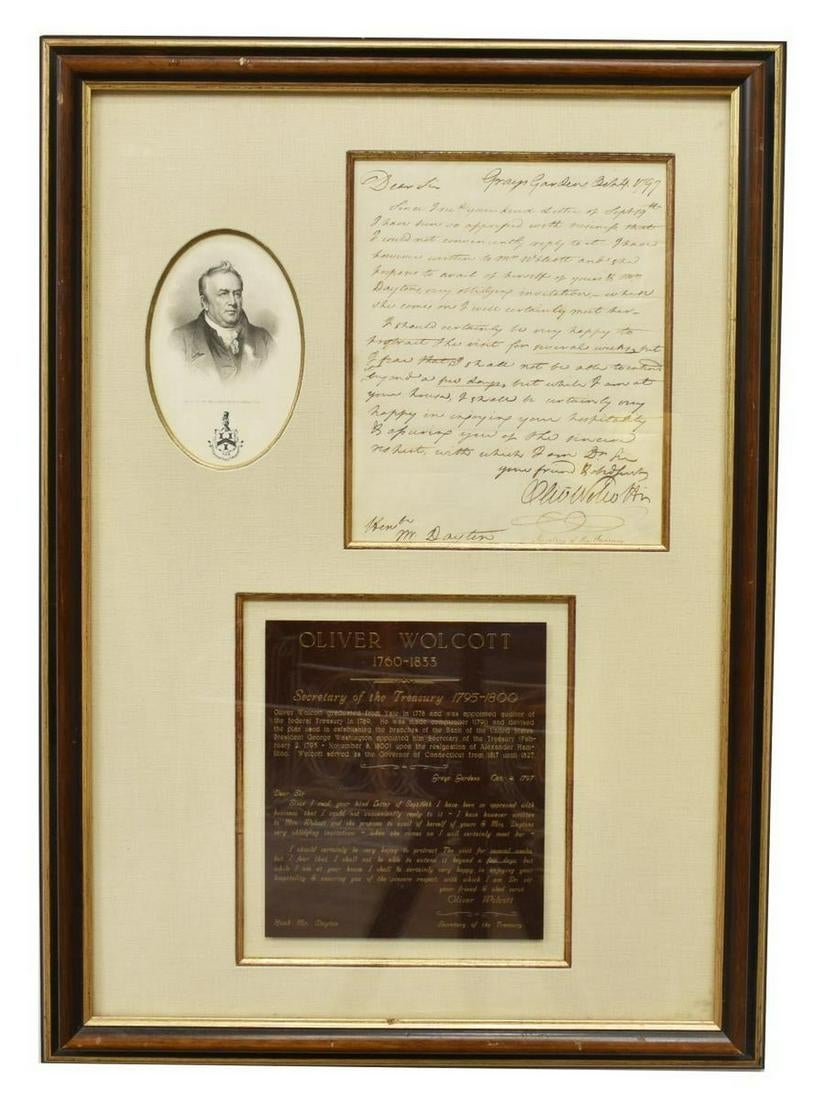 Dear Sir Grays Gardens Oct 4. 1797
Since I recd your kind Letter of Sept. 19th
I have been so oppressed with business that
I could not conveniently reply to it. I have
however written to Mrs Wolcott and she
proposes to avail of herself of yours & Mrs
Daytons very obliging invitation – when
she comes on I will certainly meet her –
I should certainly be very happy to
protract the visit for several weeks, but
I fear that I shall not be able to extend
beyond a few days, but while I am at
your house, I shall be certainly very
happy in enjoying your hospitality
& assuring you of the sincere
respect, with which I am Dr Sir
your friend & obed servt
Oliv Wolcott
Honble
Mr. Dayton
Secretary of the Treasury
OLIVER WOLCOTT
1760-1833
Secretary of the Treasury 1795-1800
Oliver Wolcott graduated from Yale in 1778 and was appointed auditor of
the federal Treasury in 1789. He was made comptroller (1791) and devised
the plan used in establishing the branches of the Bank of the United States.
President George Washington appointed him Secretary of the Treasury (Feb-
ruary 2, 1795 - November 8, 1800) upon the resignation of Alexander Ham-
ilton. Wolcott served as the Governor of Connecticut from 1817 until 1827.
Grays Gardens Oct. 4, 1797
Dear Sir
Since I read your kind Letter of Sept. 19th I have been so oppressed with
business that I could not conveniently reply to it - I have however written
to Mrs. Wolcott and she proposes to avail of herself of yours & Mrs. Daytons
very obliging invitation - when she comes on I will certainly meet her -
I should certainly be very happy to protract The visit for several weeks,
but I fear that I shall not be able to extend it beyond a few days, but
while I am at your house I shall be certainly very happy in enjoying your
hospitality & assuring you of the sincere respect with which I am Dr. sir
your friend & obed servt
Oliver Wolcott
Honb Mr. Dayton Secretary of the Treasury